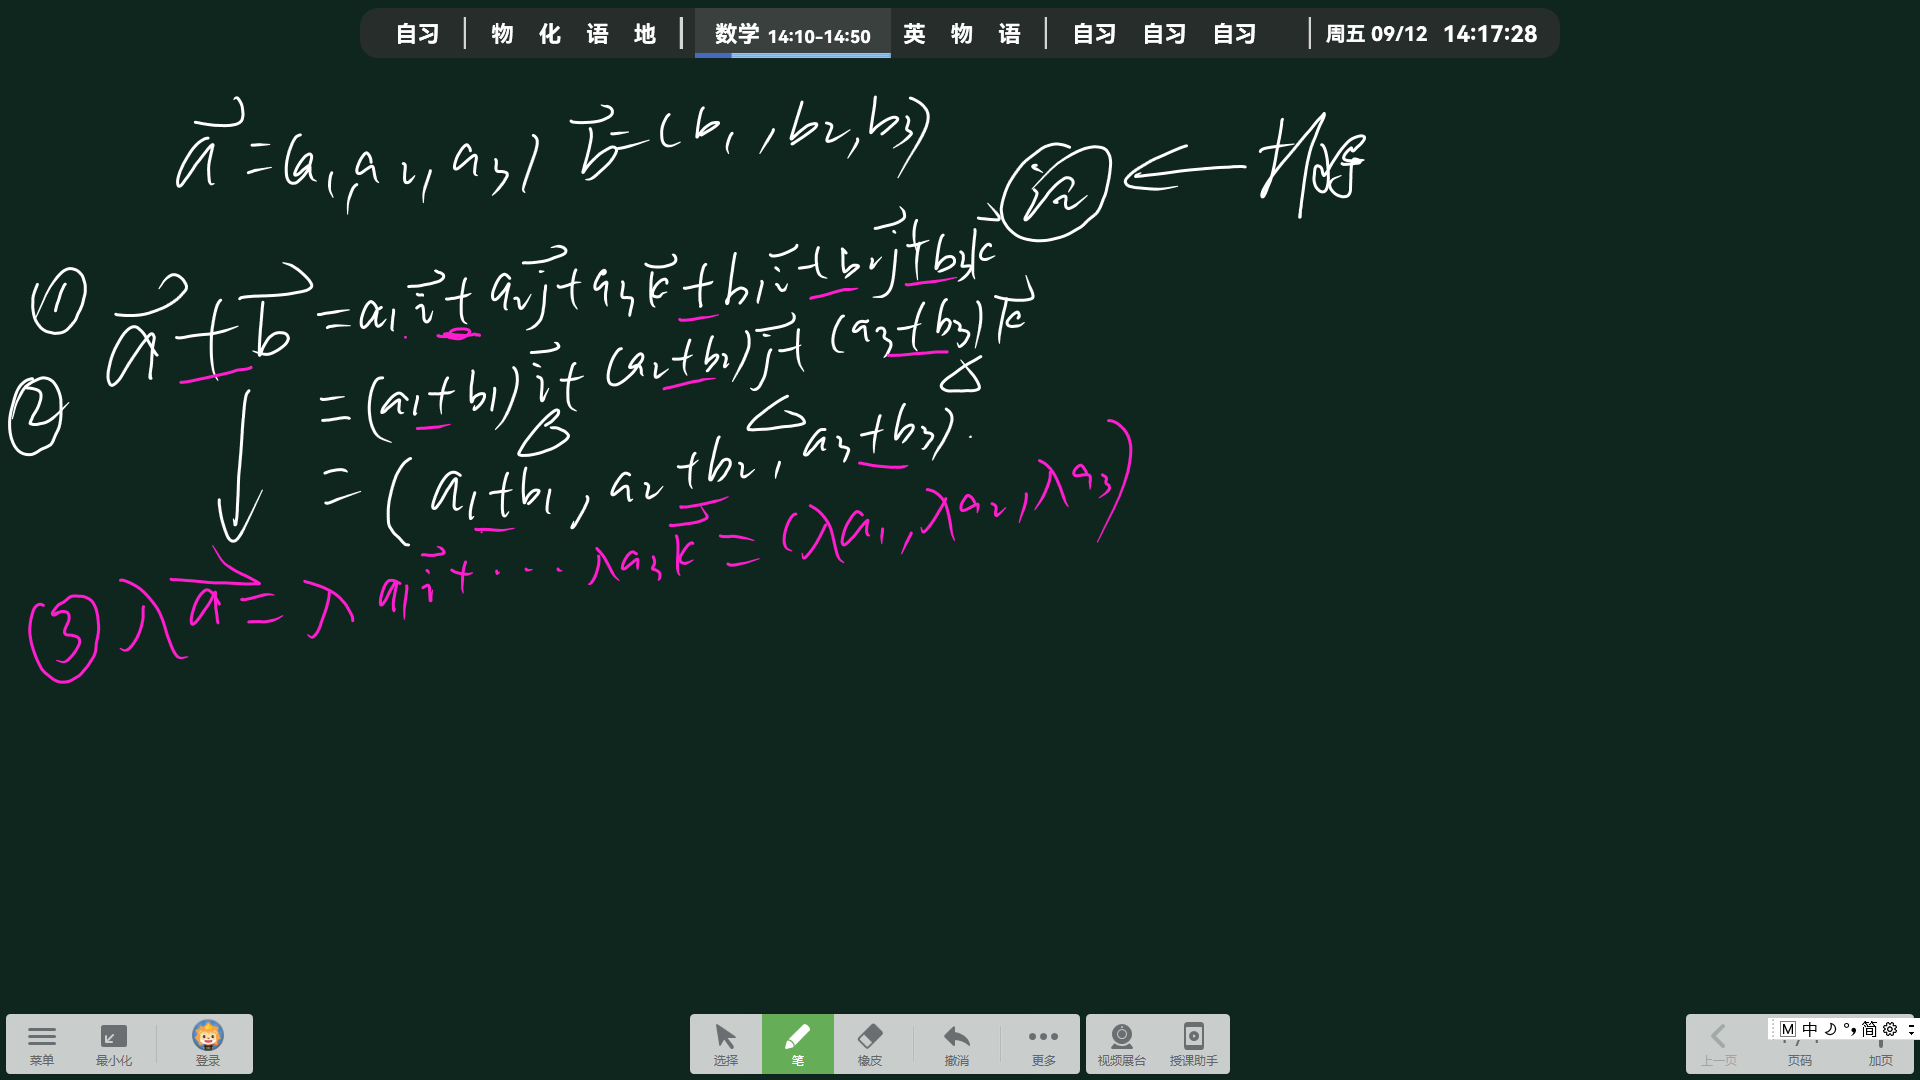 自习 物 化 语 地 数学 14:10-14:50 英 物 语 自习 自习 自习 周五 09/12 14:17:28
a⃗=(a₁,a₂,a₃) b⃗=(b₁,b₂,b₃)
① a⃗+b⃗=a₁i⃗+a₂j⃗+a₃k⃗+b₁i⃗+b₂j⃗+b₃k⃗
②
=(a₁+b₁)i⃗+(a₂+b₂)j⃗+(a₃+b₃)k⃗
=(a₁+b₁,a₂+b₂,a₃+b₃).
③ λa⃗=λa₁i⃗+···λa₃k⃗=(λa₁,λa₂,λa₃)
菜单 最小化 登录 选择 笔 橡皮 撤消 更多 视频展台 授课助手 上一页 页码 加页
M 中 简